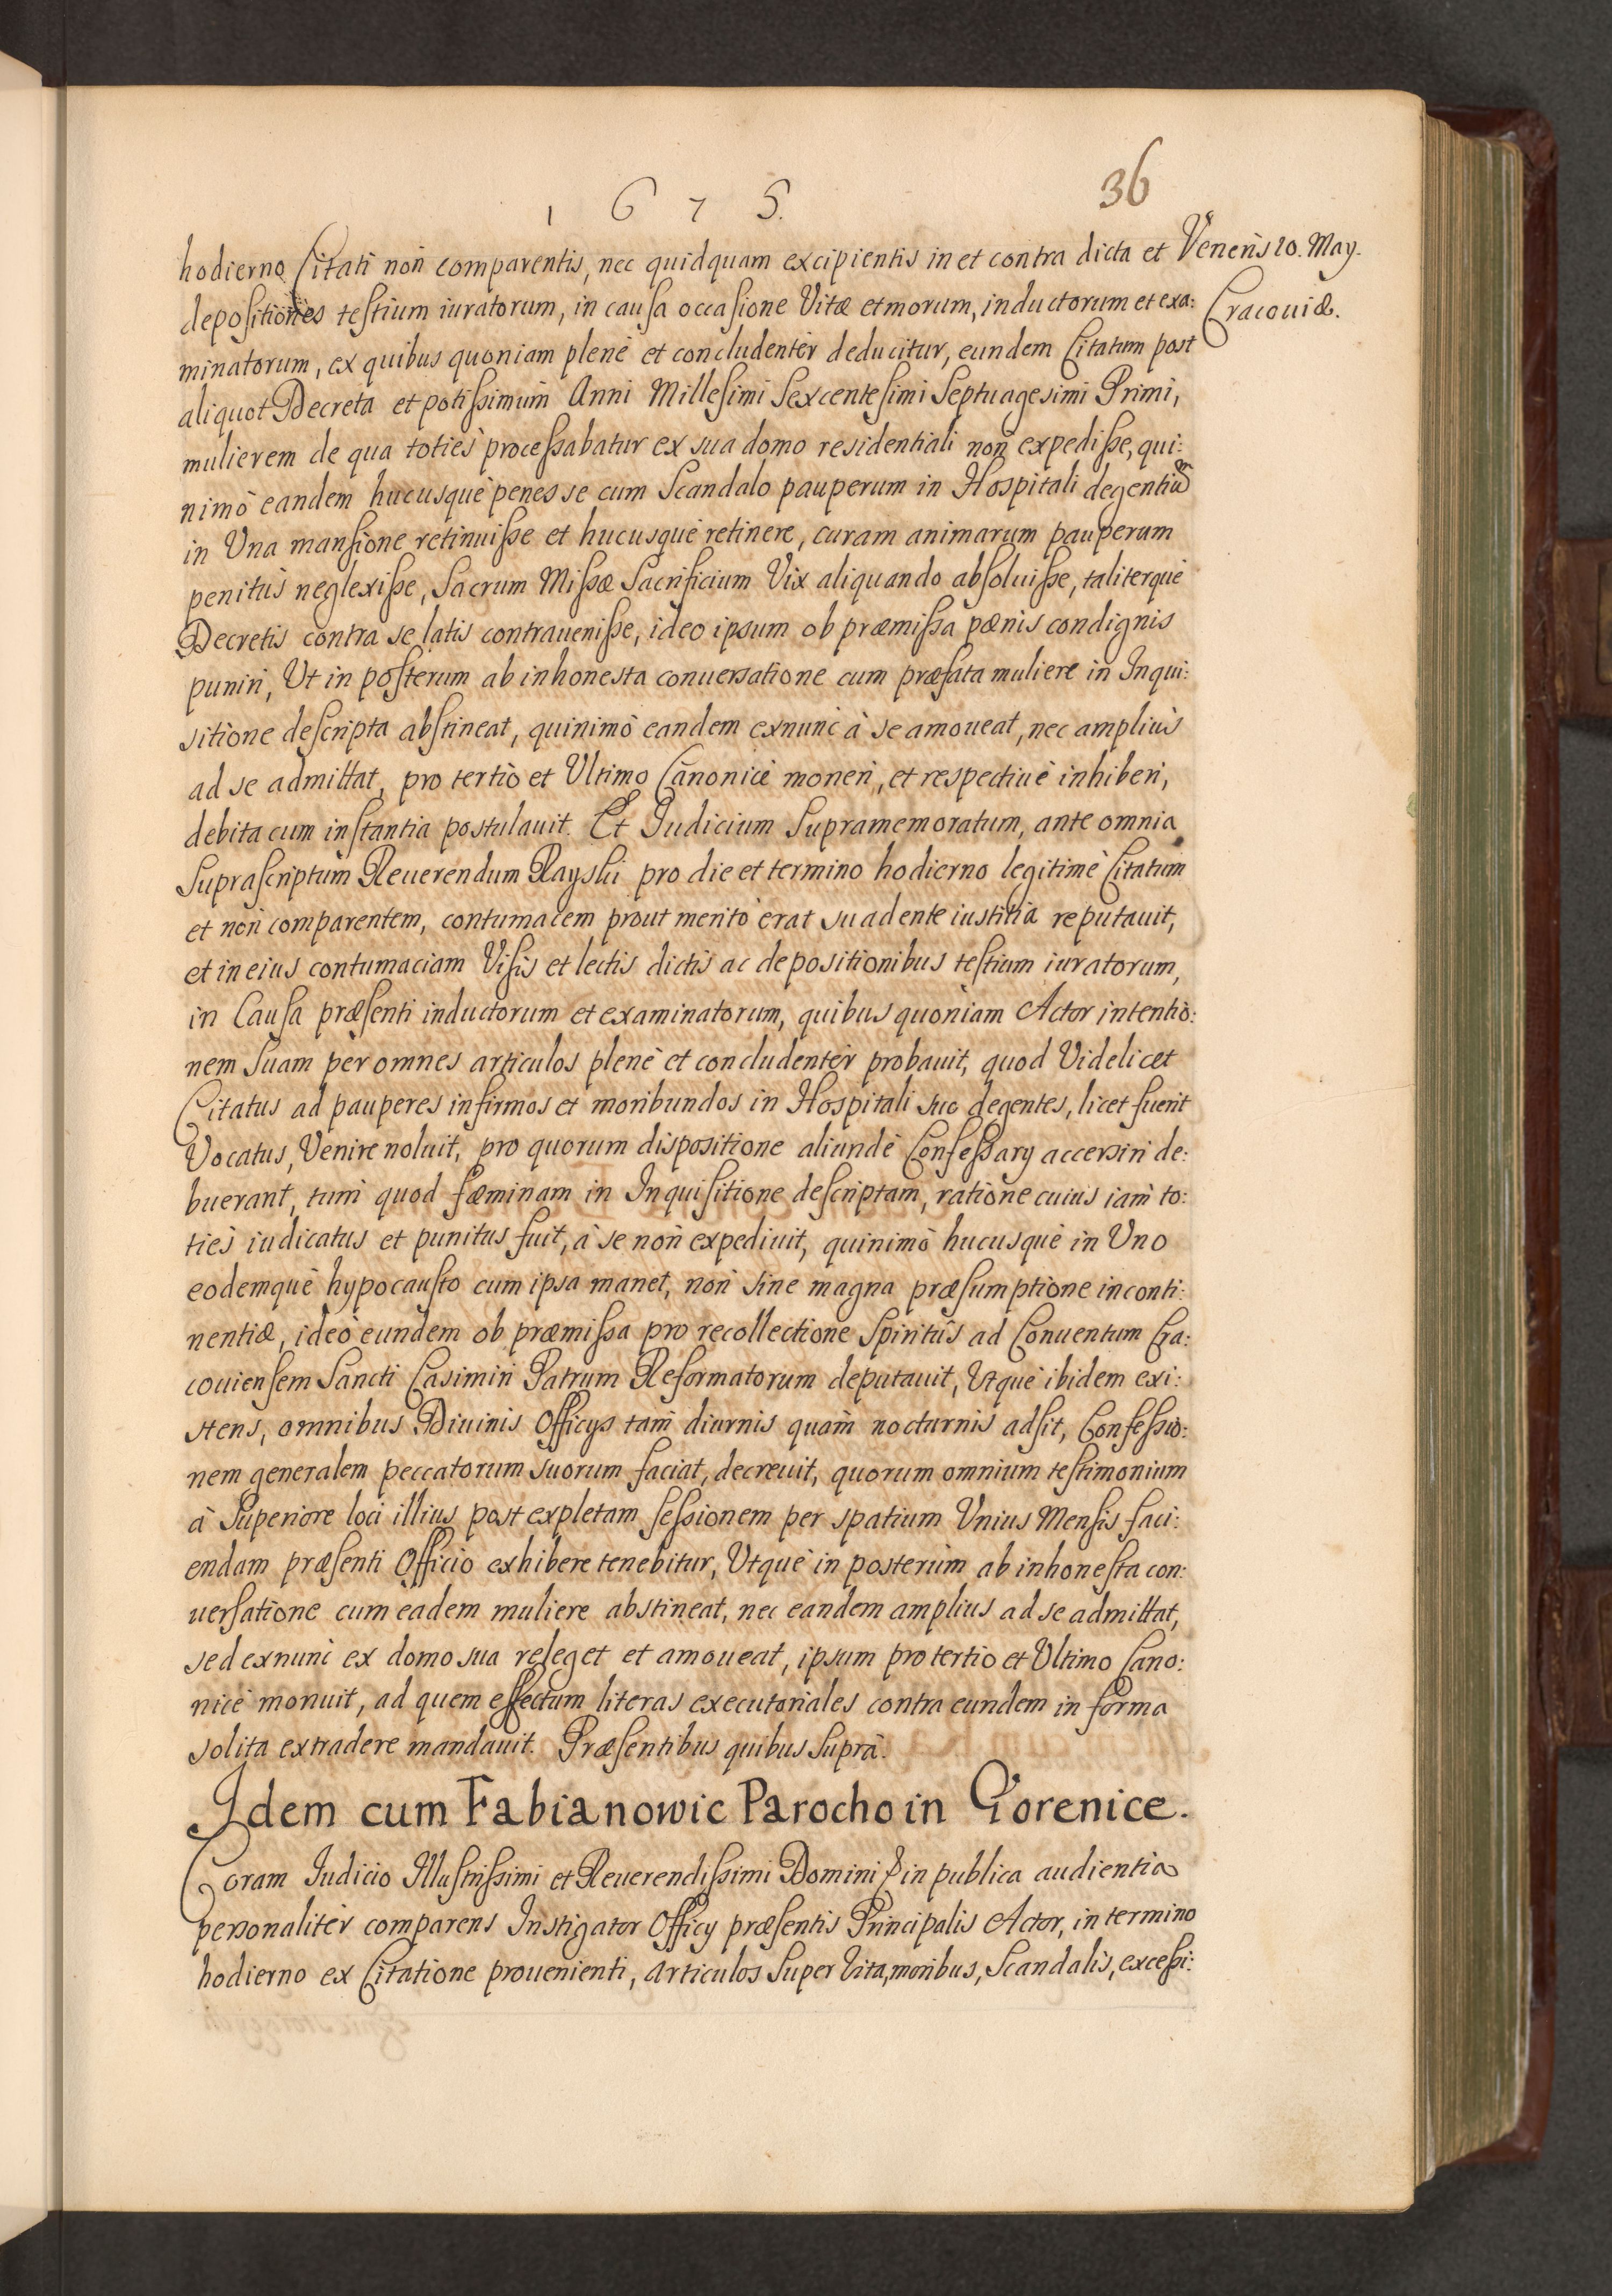 1675.
36
Veneris 10. May.
Cracouiæ.
hodierno Citati non comparentis, nec quidquam excipientis in et contra dicta et
depositiones testium iuratorum, in causa occasione Vitæ et morum, inductorum et exa:
minatorum, ex quibus quoniam plenè et concludentèr deducitur, eundem Citatum post
aliquot Decreta et potissimùm Anni Millesimi Sexcentesimi Septuagesimi Primi,
mulierem de qua totiès processabatur ex sua domo residentiali non expedisse, qui:
nimò eandem hucusquè penes se cum Scandalo pauperum in Hospitali degentium
in Una mansione retinuisse et hucusquè retinere, curam animarum pauperum
penitùs neglexisse, Sacrum Missæ Sacrificium Vix aliquando absoluisse, taliterquè
Decretis contra se latis contrauenisse, ideo ipsum ob præmissa pænis condignis
puniri, Ut in posterum ab inhonesta conuersatione cum præfata muliere in Inqui:
sitione descripta abstineat, quinimò eandem exnunc à se amoueat, nec ampliùs
ad se admittat, pro tertio et Ultimo Canonicè moneri, et respectiuè inhiberi,
debita cum instantia postulauit. Et Iudicium Supramemoratum, ante omnia
Suprascriptum Reuerendum Rayski pro die et termino hodierno legitimè Citatum
et non comparentem, contumacem prout meritò erat suadente iustitia reputauit,
et in eius contumaciam Visis et lectis dictis ac depositionibus testium iuratorum,
in Causa præsenti inductorum et examinatorum, quibus quoniam Actor intentio:
nem Suam per omnes articulos plenè et concludentèr probauit, quod Videlicet
Citatus ad pauperes infirmos et moribundos in Hospitali suo degentes, licet fuerit
Vocatus, Venire noluit, pro quorum dispositione aliundè Confessary accersiri de:
buerant, tum quod fæminam in Inquisitione descriptam, ratione cuius iam to:
tiès iudicatus et punitus fuit, à se non expediuit, quinimò hucusquè in Uno
eodemquè hypocausto cum ipsa manet, non sine magna præsumptione inconti:
nentiæ, ideò eundem ob præmissa pro recollectione Spiritûs ad Conuentum Cra:
couiensem Sancti Casimiri Patrum Reformatorum deputauit, Utquè ibidem exi:
stens, omnibus Diuinis Officys tam diurnis quàm nocturnis adsit, Confessio:
nem generalem peccatorum suorum faciat, decreuit, quorum omnium testimonium
à Superiore loci illius post expletam sessionem per spatium Unius Mensis faci:
endam præsenti Officio exhibere tenebitur, Utquè in posterùm ab inhonesta con:
uersatione cum eadem muliere abstineat, nec eandem amplius ad se admittat,
sed exnunc ex domo sua releget et amoueat, ipsum pro tertio et Ultimo Cano:
nicè monuit, ad quem effectum literas executoriales contra eundem in forma
solita extradere mandauit. Præsentibus quibus Suprà.
Idem cum Fabianowic Parocho in Gorenice.
Coram Iudicio Illustrissimi et Reuerendissimi Domini in publica audientia
personalitèr comparens Instigator Officy præsentis Principalis Actor, in termino
hodierno ex Citatione prouenienti, articulos Super Vita, moribus, Scandalis, excessi: